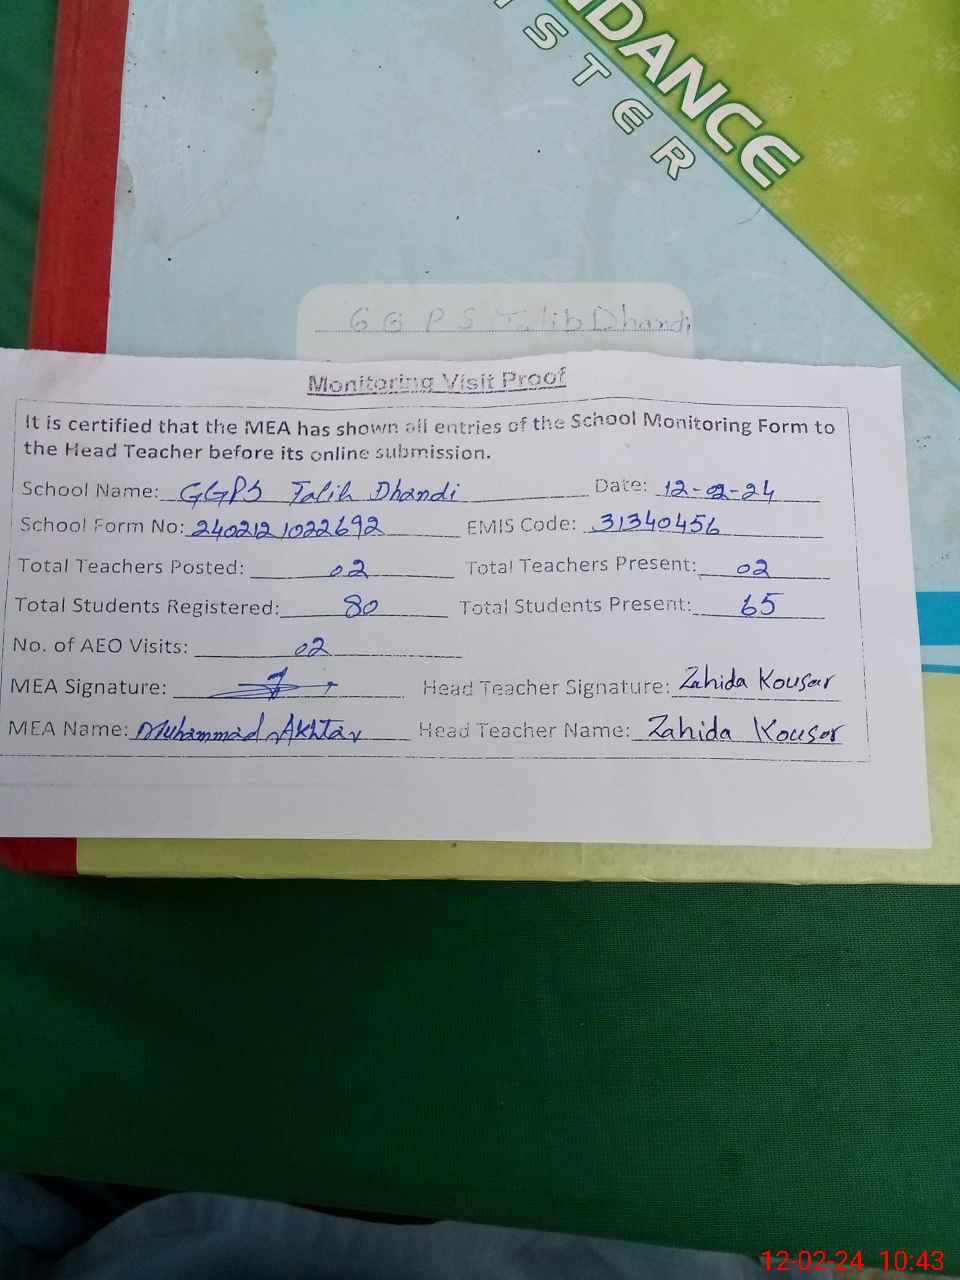 NDANCE
ISTER
GGPS Talib Dhandi
Monitoring Visit Proof
It is certified that the MEA has shown all entries of the School Monitoring Form to
the Head Teacher before its online submission.
School Name: GGPS Talib Dhandi Date: 12-02-24
School Form No: 2402121022692 EMIS Code: 31340456
Total Teachers Posted: 02 Total Teachers Present: 02
Total Students Registered: 80 Total Students Present: 65
No. of AEO Visits: 02
MEA Signature: Head Teacher Signature: Zahida Kousar
MEA Name: Muhammad Akhtar Head Teacher Name: Zahida Kousar
12-02-24 10:43